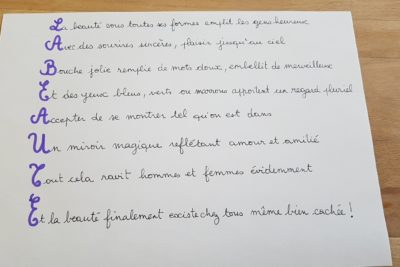 La beauté sous toutes ses formes emplit les gens heureux
Avec des sourires sincères, plaisir jusqu'au ciel
Bouche jolie remplie de mots doux, embellit de merveilleux
Et des yeux bleus, verts ou marrons apportent un regard pluriel
Accepter de se montrer tel qu'on est dans
Un miroir magique reflétant amour et amitié
Tout cela ravit hommes et femmes évidemment
Et la beauté finalement existe chez tous même bien cachée !